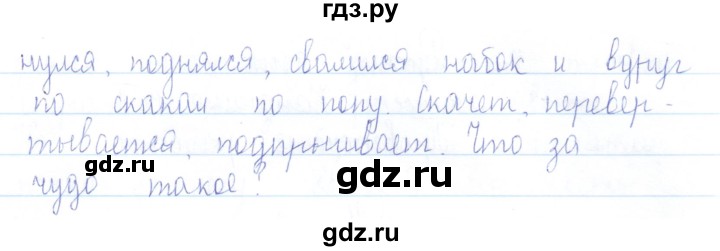 гдз.ру
нулся, поднялся, свалился набок и вдруг
по скакал по полу. Скачет, перевер-
тывается, подпрыгивает. Что за
чудо такое?
gdz.ru
gdz.ru
gdz.ru
gdz.ru
gdz.ru